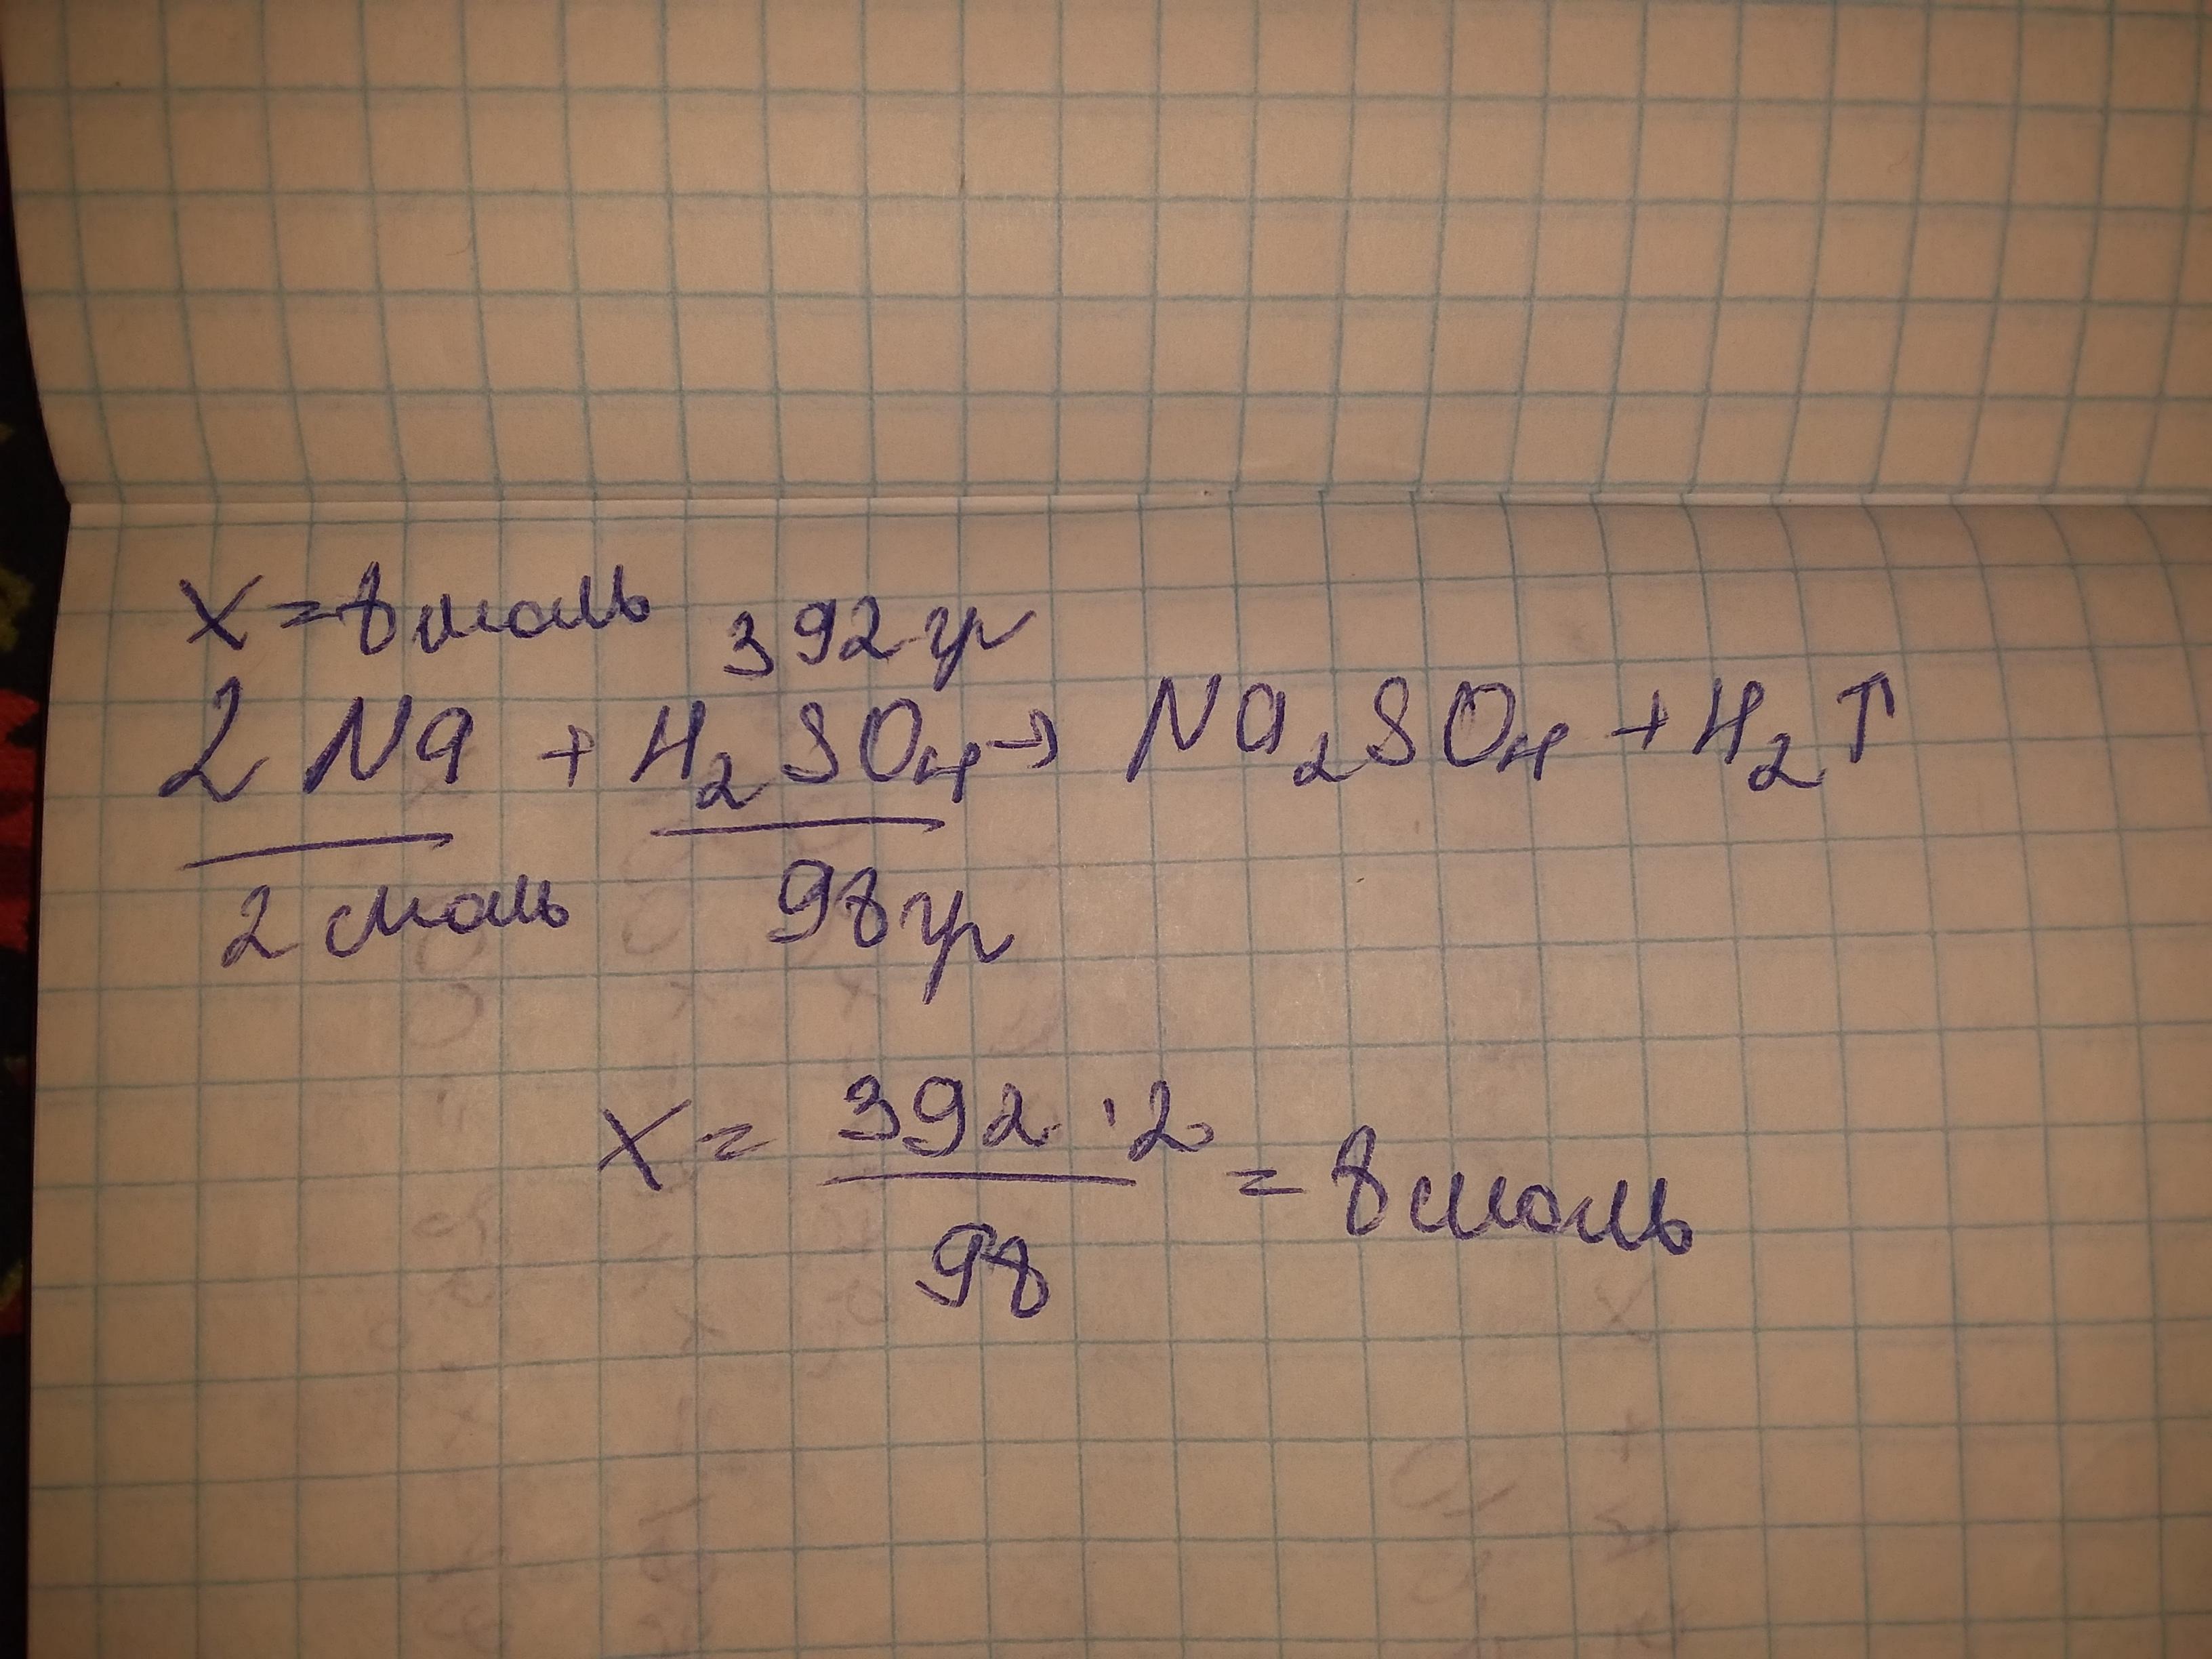 X = 8 моль 392 гр
2 Na + H₂SO₄ → Na₂SO₄ + H₂↑
2 моль 98 гр
X = 392 · 2 / 98 = 8 моль